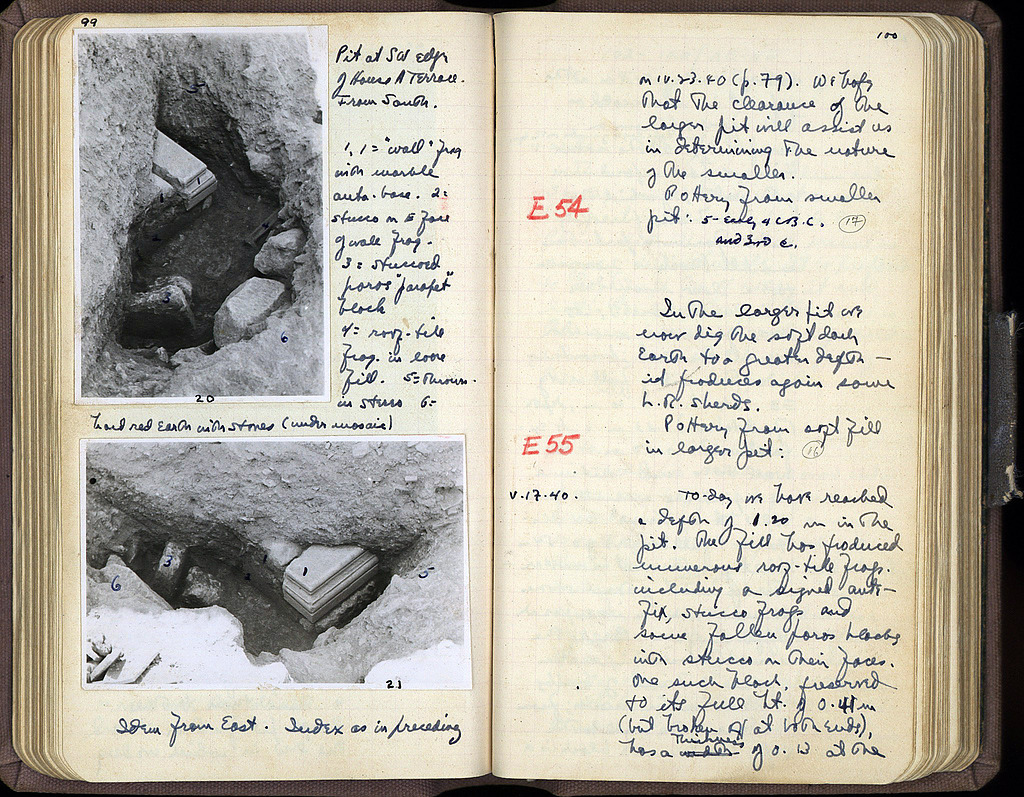 99
Pit at SW edge
of House A Terrace.
From South.
1, 1 = "wall" frag
with marble
anta-base. 2 =
stucco on E face
of wall frag.
3 = stuccoed
poros "parapet"
block
4 = roof-tile
frag. in loose
fill. 5 =
in situ 6 =
hard red Earth with stones (under mosaic)
5
1
2
4
3
6
20
6
3
2
1
1
5
21
Idem from East. Index as in preceding
100
on IV.23.40 (p.79). We hope
that the clearance of the
larger pit will assist us
in determining the nature
of the smaller.
E 54
Pottery from smaller
pit: 5 - early 4 c B.C. (17)
and 3rd c.
In the larger pit we
now dig the soft dark
Earth to a greater depth —
it produces again some
L.R. sherds.
E 55
Pottery from soft fill
in larger pit: (16)
V.17.40.
To-day we have reached
a depth of 1.20 m in the
pit. The fill has produced
numerous roof-tile frags.
including a signed ante-
fix, stucco frags and
some fallen poros blocks
with stucco on their faces.
One such block, preserved
to its full ht. of 0.41 m
(but broken off at both ends),
thickness
has a width of 0.13 at the